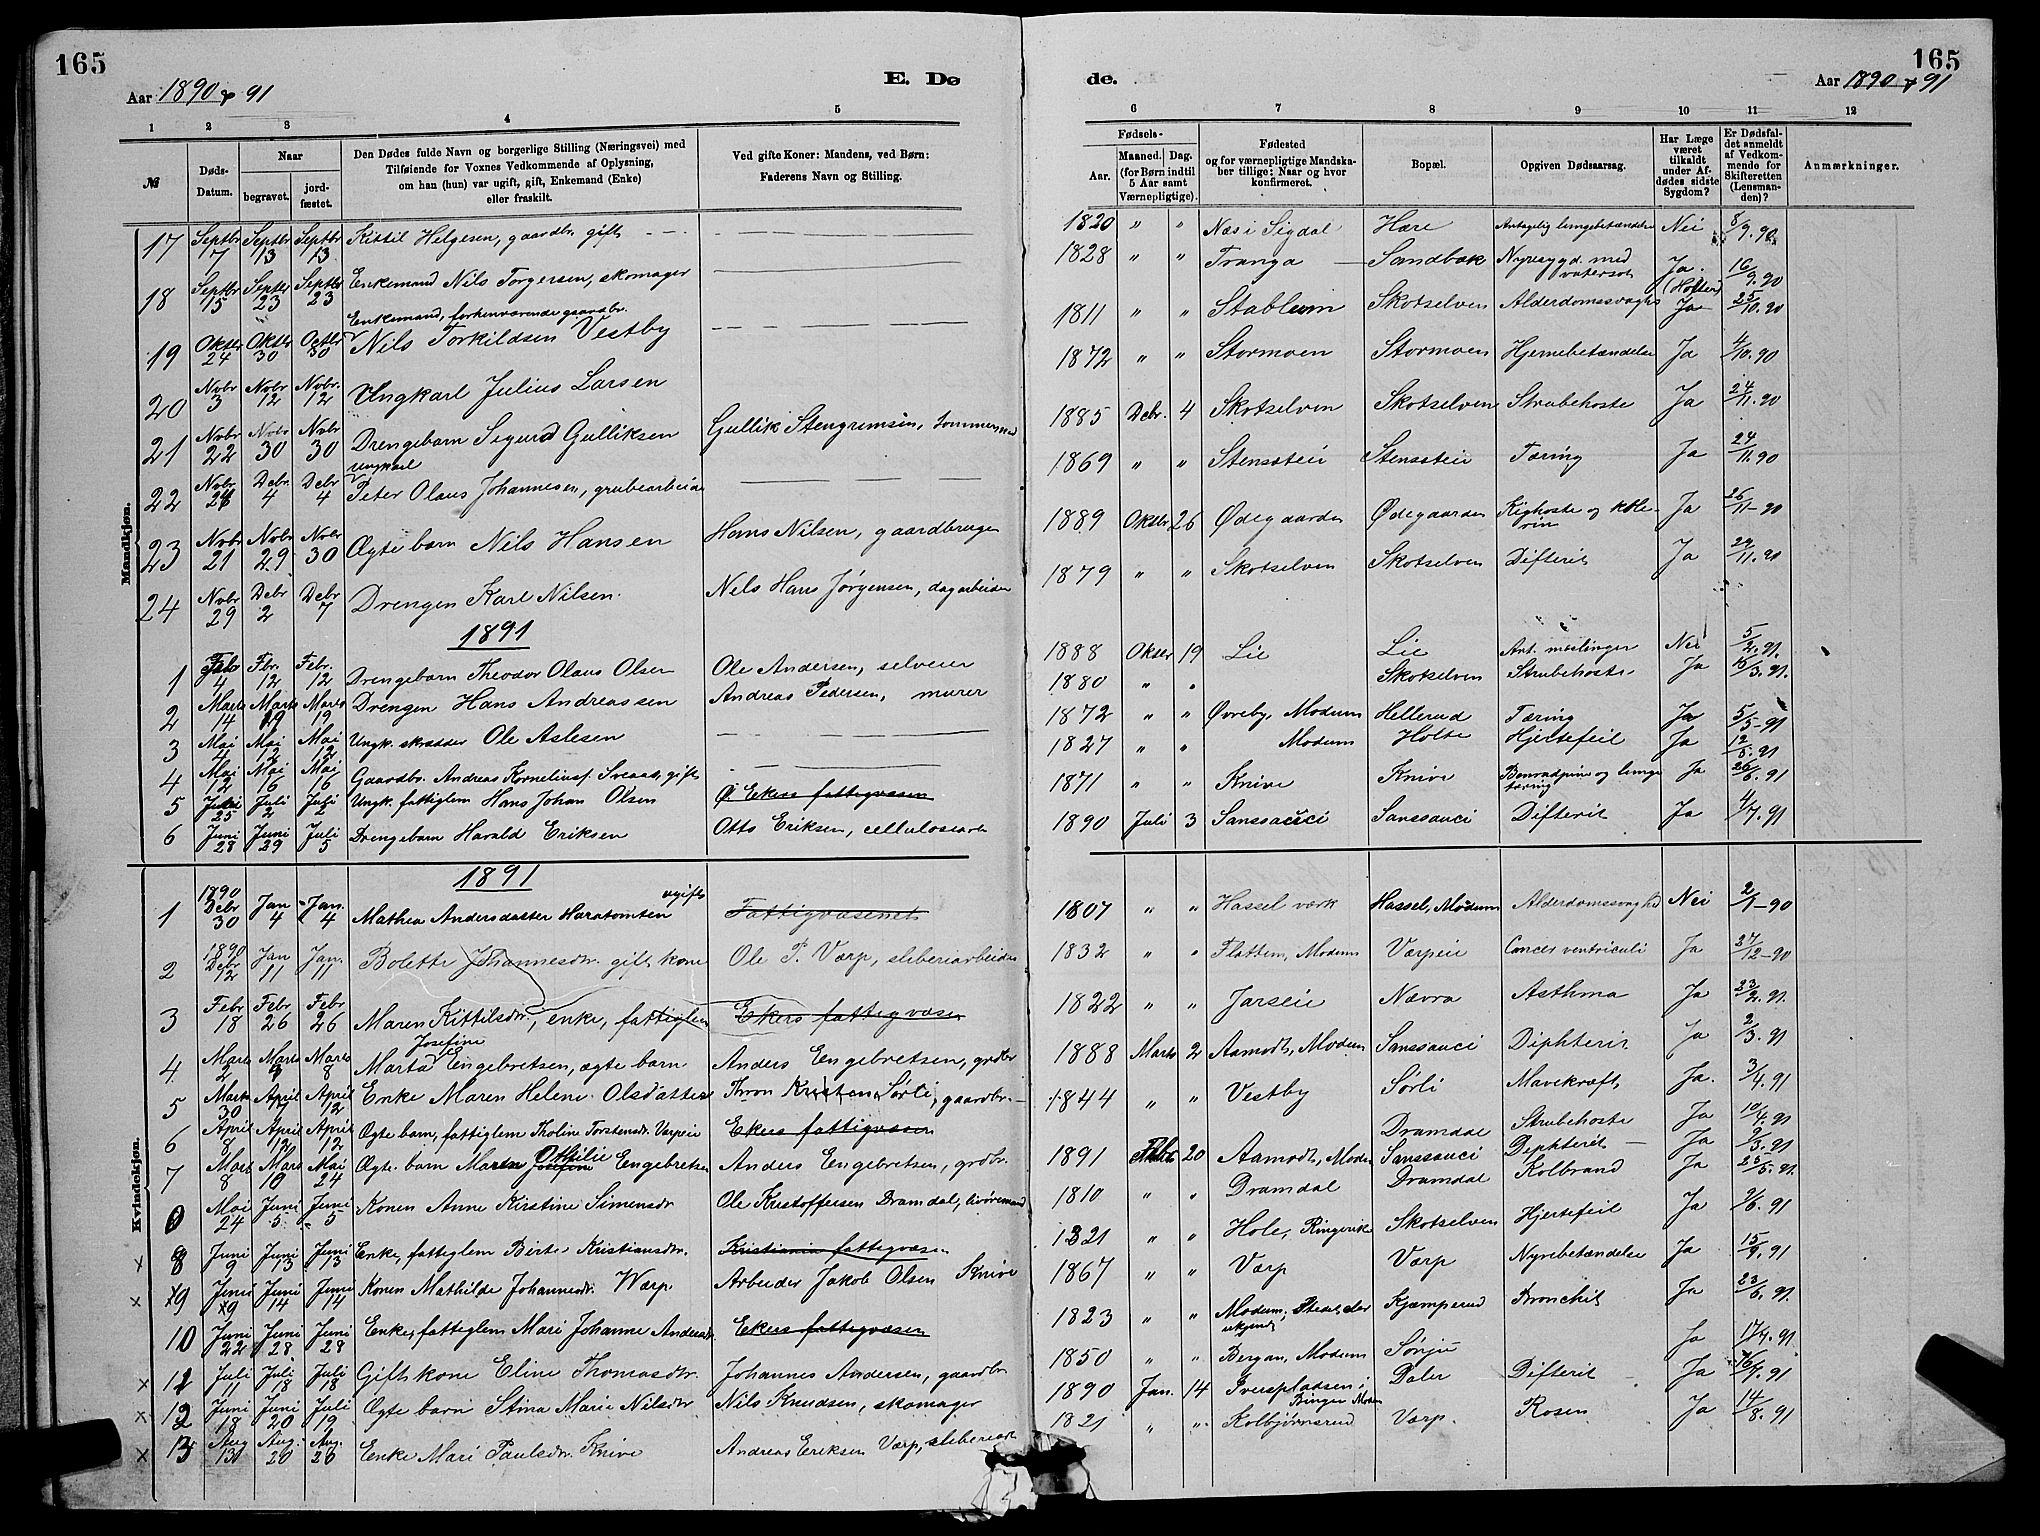 165
Aar 1890 & 91
E. Dø
1
2
3
4
5
№
Døds-
Datum.
Naar
begravet.
jord-
fæstet.
Den Dødes fulde Navn og borgerlige Stilling (Næringsvei) med
Tilføiende for Voxnes Vedkommende af Oplysning,
om han (hun) var ugift, gift, Enkemand (Enke)
eller fraskilt.
Ved gifte Koner: Mandens, ved Børn:
Faderens Navn og Stilling.
Mandkjøn.
17 Septbr 7 Septbr 13 Septbr 13 Kittil Helgesen, gaardbr. gift
18 Septbr 15 Septbr 23 Septbr 23 Enkemand Nils Torgersen, skomager
Enkemand, forhenværende gaardbr.
19 Oktbr 24 Oktbr 30 Octbr 30 Nils Torkildsen Vestby
20 Novbr 3 Novbr 12 Novbr. 12 Ungkarl Julius Larsen
21 Novbr 22 Novbr 30 Novbr 30 Drengebarn Sigurd Gulliksen Gullik Stengrimsen, tømmermand
Ungkarl
22 Novbr Debr. 4 Debr 4 Peter Olaus Johannesen, grubearbeider
23 Novbr 21 Novbr 29 Novbr 30 Ægte barn Nils Hansen Hans Nilsen, gaardbruger
24 Novbr 29 Debr 2 Debr 7 Drengen Karl Nilsen. Nels Hans Jørgensen, dagarbeider
1891
1 Febr 4 Febr. 12 Febr. 12 Drengebarn Theodor Olaus Olsen Ole Andersen, selveier
2 Marts 14 Marts 19 Marts 19 Drengen Hans Andreassen Andreas Pedersen, murer
3 Mai 4 Mai 12 Mai 12 Ungk. skrædder Ole Aslesen
4 Mai 12 Mai 16 Mai 16 Gaardbr. Andreas Korneliusf. Sveaas, gift
5 Juni 25 Juli 2 Juli 2 Ungk. fattiglem Hans Johan Olsen Ø. Ekers fattigvæsen
6 Juni 28 Juni 29 Juli 5 Drengebarn Harald Eriksen Otto Eriksen, cellulosearb
Kvindekjøn.
1891
1 1890 Debr 30 Jan 4 Jan. 4 Mathea Andersdatter Haratomten ugift Fattigvæsenet
2 1890 Debr 12 Jan 11 Jan. 11 Bolette Johannesdr. gift kone Ole P. Værp, sleberiarbeider
3 Febr 18 Febr 26 Febr 26 Maren Kittilsdr., enke, fattiglem Ekers fattigvæsen
Josefine
4 Marts 2 Marts 8 Marts 8 Marta Engebretsen, ægte barn Anders Engebretsen, grdbr
5 Marts 30 April 7 April 12 Enke Maren Helene Olsdatter Tron Kristens. Sørli, gaardbr.
6 April 8 April 12 April 12 Ægte barn, fattiglem Tholine Torstensdr. Værpeie Ekers fattigvæsen
Othilie
7 Mart 8 Mars 10 Mai 24 Ægte barn Maren Josefine Engebretsen Anders Engebretsen, grdbr.
Mai 24 Juni 5 Juni 5 Konen Anne Kirstine Simensdr Ole Kristoffersen Dramdal, livøremand
x 8 Juni 9 Juni 13 Juni 13 Enke, fattiglem Birte Kristiansdr. Kristiania fattigvæsen
x 9 Juni 9 Juni 14 Juni 14 Konen Mathilde Johannesdr. Wærp Arbeider Jakob Olsen Knive
10 Juni 22 Juni 28 Juni 28 Enke, fattiglem Mari Johanne Andersdr. Ekers fattigvæsen
x Juli 11 Juli 18 Juli 18 Gift kone Eline Thomasdr. Johannes Andersen, gaardbr
x Juni 18 Juni 20 Juli 19 Ægte barn Stina Marie Nilsdtr Nils Knudsen, skomager
x Aug 13 Aug. 20 Aug. 20 Enke Mari Paulsdr. Knive Andreas Eriksen Værp, sleberiarb
165
Aar 1890 & 91
de.
6
7
8
9
10
11
12
Fødsels-
Aar.
Maaned.
Dag.
(for Børn indtil
5 Aar samt
Værnepligtige).
Fødested
og for værnepligtige Mandska-
ber tillige: Naar og hvor
konfirmeret.
Bopæl.
Opgiven Dødsaarsag.
Har Læge
været
tilkaldt
under Af-
dødes sidste
Sygdom?
Er Dødsfal-
det anmeldt
af Vedkom-
mende for
Skifteretten
(Lensman-
den)?
Anmærkninger.
1820 " " Næs i Sigdal Hære Antagelig lungebetændelse Nei 8/9.90
1828 " " Tranga Sandbæk Nyresygd. med vatersot Ja. 16/9.90
1811 " " Stablum Skotselven Alderdomssvaghed (Holter) Ja 25/10.90
1872 " " Stormoen Stormoen Hjernebetændelse Ja 4/10.90
1885 Debr. 4 Skotselven Skotselven Strubehoste Ja 24/11.90
1869 " " Stenssteie Stenssteie Tæring Ja 24/11.90
1889 Oktbr 26 Ødegaarden Ødegaarden Kighoste og Ja 26/11-90
1879 " " Skotselven Skotselven Difterit Ja 29/11.90
1888 Oktbr 19 Lie Lie Ant. meslinger Nei 5/2.91.
1880 " " Skotselven Strubehoste Ja 16/3.91.
1872 " " Øvreby, Modum Hellerud Tæring Ja 5/5-91
1827 " " Modum Holte Hjertefeil Ja 12/5.91
1871 " " Knive Knive Benradpine og lunge tæring Ja 26/6.91
1890 Juli 3 Sanssouci Sanssouci Difterit Ja 4/7.91
1807 " " Hassel værk Hassel, Modum Alderdomssvaghed Nei 2/1-90
1832 " " Flattum, Modum Værpeie Cancer ventriculi Ja 27/12-90
1822 " " Jarseie Nævra Asthma Ja 23/2.91.
1888 Marts 2 Aamodt, Modum Sanssouci Diphterit Ja 2/3.91
1844 " " Vestby Sørli Mavekræft, Ja. 3/4.91
Dramdal Strubehoste Ja 10/4.91
1891 Febr 20 Aamodt, Modum Sanssouci Diphterit Ja 9/3.91
1810 " " Dramdal Dramdal Kolbrand Ja 25/5.91.
1821 " " Hole, Ringerike Skotselven Hjertefeil Ja 9/6.91
1867 " " Værp Værp Nyrebetændelse Ja 15/7.91
1823 " " Modum, Stedet der ukjendt Kjæmperud Bronchit Ja 23/6.91.
1850 " " Bergan, Modum Sønju Ja 17/7.91
1890 Jan. 14 Tverspladsen i Ringer Modum Daler Difterit Ja 16/7.91
1821 " " Kolbjørnsrud Værp. Rosen Ja 14/8.91